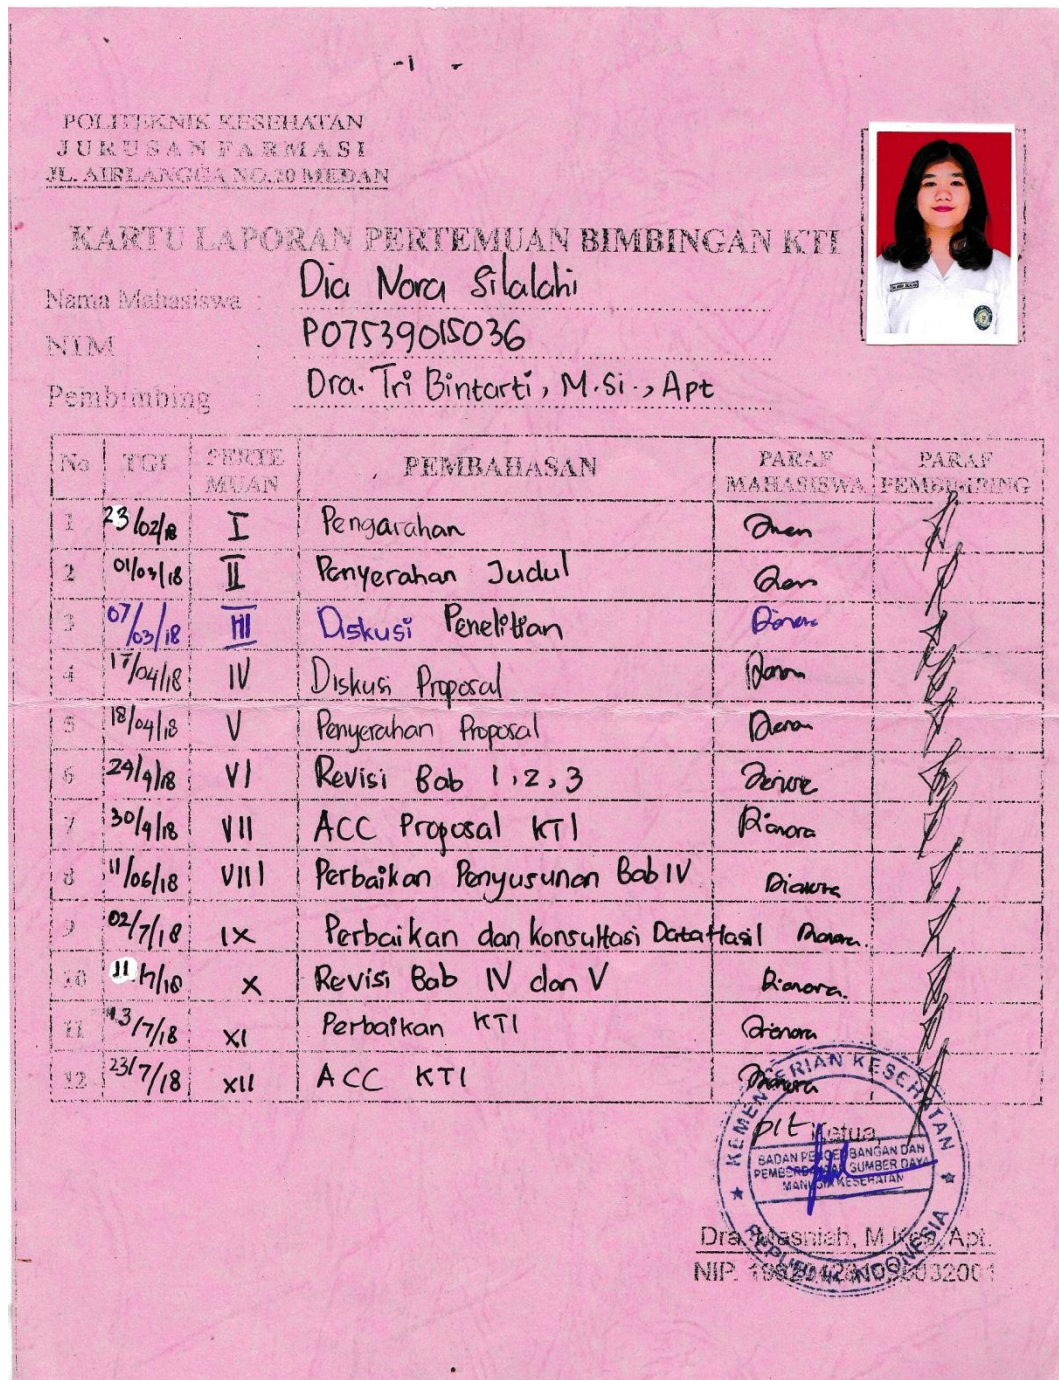 -1 -
POLITEKNIK KESEHATAN
JURUSAN FARMASI
JL. AIRLANGGA NO.20 MEDAN
KARTU LAPORAN PERTEMUAN BIMBINGAN KTI
Nama Mahasiswa : Dia Nora Silalahi
NIM : P07539015036
Pembimbing : Dra. Tri Bintarti, M.Si., Apt
No TGl PERTE MUAN PEMBAHASAN PARAF MAHASISWA PARAF PEMBIMBING
1 23/02/18 I Pengarahan
2 01/03/18 II Penyerahan Judul
3 07/03/18 III Diskusi Penelitian
4 17/04/18 IV Diskusi Proposal
5 18/04/18 V Penyerahan Proposal
6 24/4/18 VI Revisi Bab 1,2,3
7 30/4/18 VII ACC Proposal KTI
8 11/06/18 VIII Perbaikan Penyusunan Bab IV Dianora
9 02/7/18 IX Perbaikan dan konsultasi Data Hasil Dianora.
10 11/7/18 X Revisi Bab IV dan V Dianora.
11 13/7/18 XI Perbaikan KTI Dianora
12 23/7/18 XII ACC KTI Dianora
plt Ketua,
KEMENTERIAN KESEHATAN
BADAN PENGEMBANGAN DAN
PEMBERDAYAAN SUMBER DAYA
MANUSIA KESEHATAN
REPUBLIK INDONESIA
Dra. Masniah, M.Kes, Apt.
NIP.